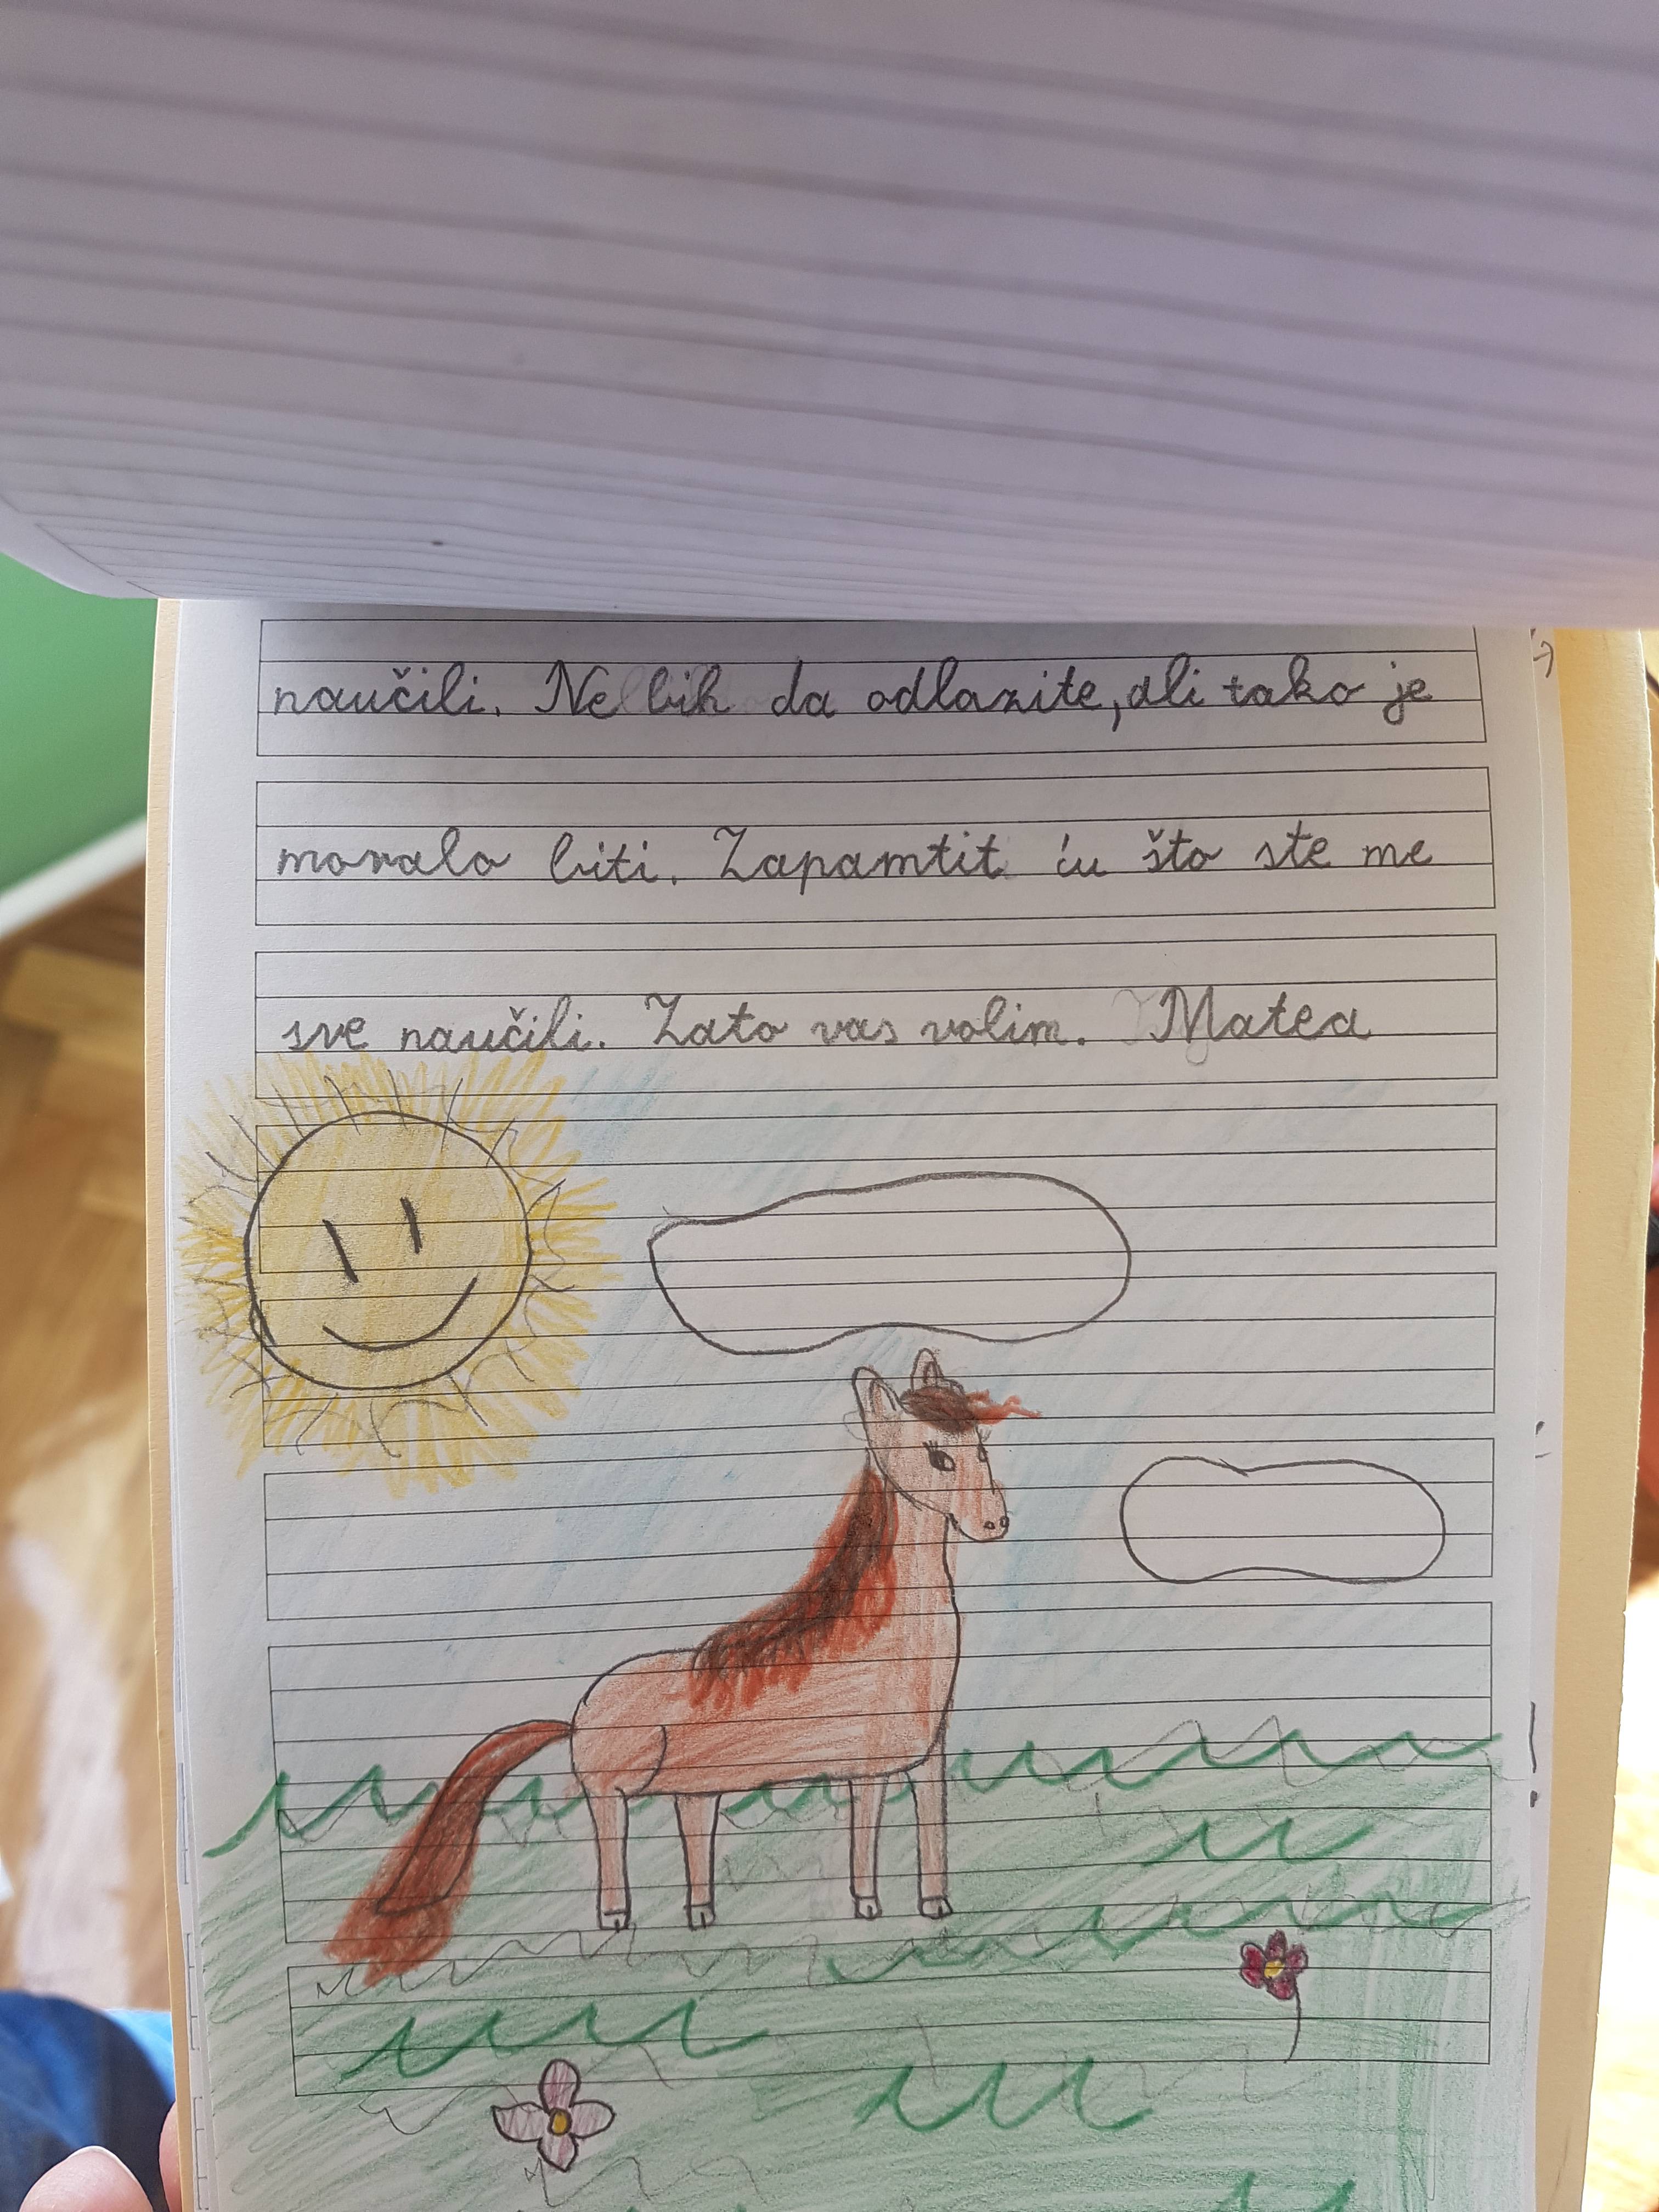 naučili. Ne bih da odlazite, ali tako je
moralo biti. Zapamtit ću što ste me
sve naučili. Zato vas volim. Matea